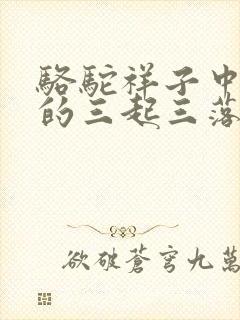 駱駝祥子中
的三起三落
欲破蒼穹九萬